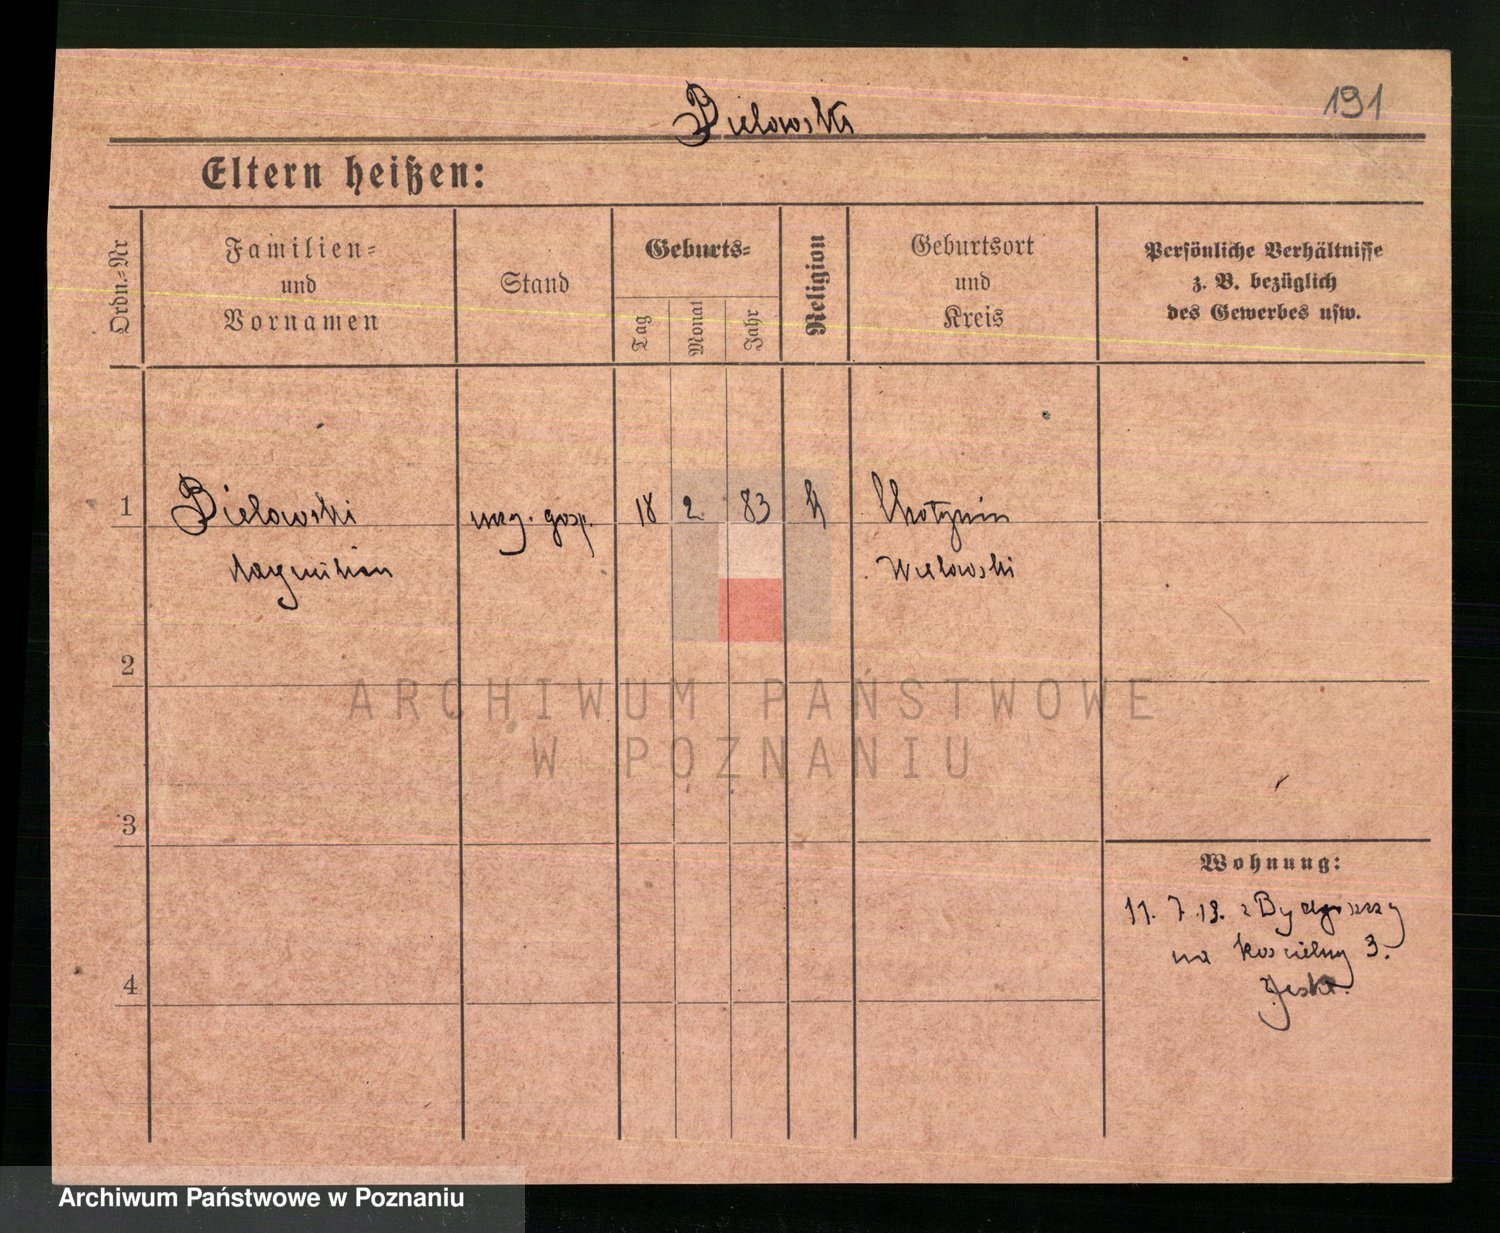 191
Bielowski
Eltern heißen:
Ordn.=Nr
Familien=
und
Vornamen
Stand
Geburts=
Tag
Monat
Jahr
Religion
Geburtsort
und
Kreis
Persönliche Verhältnisse
z. B. bezüglich
des Gewerbes usw.
1
Bielowski urz. gosp. 18 2 83 k Chotynin
Maksymilian Wielowski
2
3
4
Wohnung:
11. 7. 19. z Bydgoszczy
na Kościelny 3.
ARCHIWUM PAŃSTWOWE
W POZNANIU
Archiwum Państwowe w Poznaniu